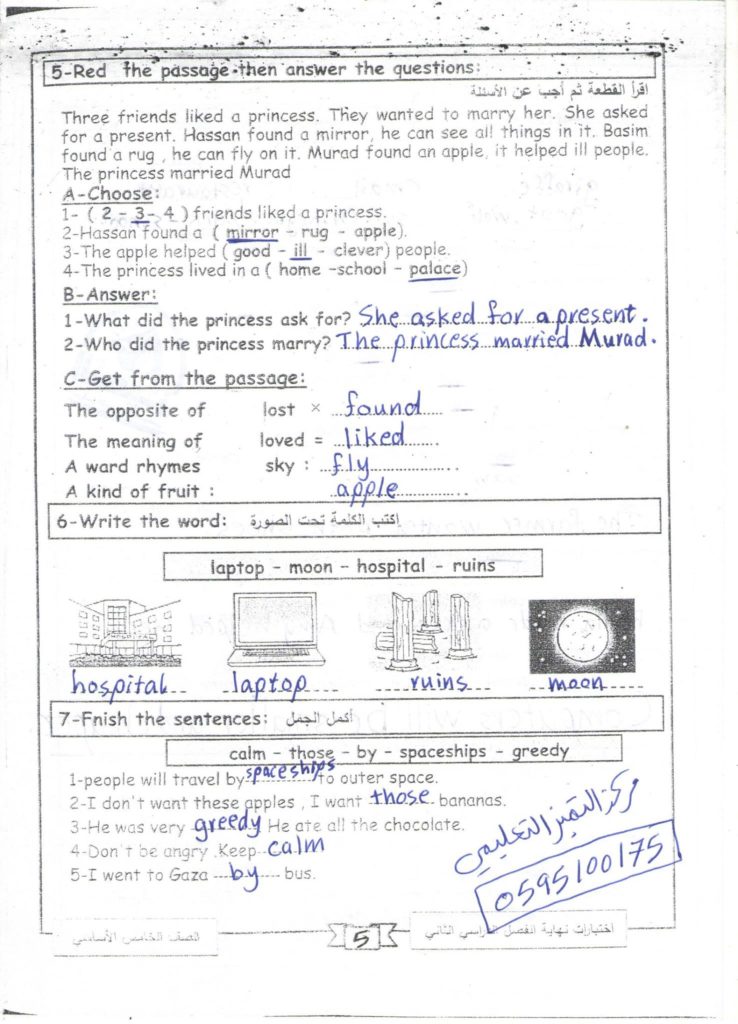 5-Red the passage then answer the questions:
اقرأ القطعة ثم أجب عن الأسئلة
Three friends liked a princess. They wanted to marry her. She asked
for a present. Hassan found a mirror, he can see all things in it. Basim
found a rug , he can fly on it. Murad found an apple, it helped ill people.
The princess married Murad
A-Choose:
1- ( 2 - 3 - 4 ) friends liked a princess.
2-Hassan found a ( mirror - rug - apple).
3-The apple helped ( good - ill - clever) people.
4-The princess lived in a ( home -school - palace)
B-Answer:
1-What did the princess ask for? She asked for a present.
2-Who did the princess marry? The princess married Murad.
C-Get from the passage:
The opposite of lost × found
The meaning of loved = liked
A ward rhymes sky : fly
A kind of fruit : apple
6-Write the word: اكتب الكلمة تحت الصورة
laptop - moon - hospital - ruins
hospital laptop ruins moon
7-Fnish the sentences: أكمل الجمل
calm - those - by - spaceships - greedy
1-people will travel by spaceships to outer space.
2-I don't want these apples , I want those bananas.
3-He was very greedy He ate all the chocolate.
4-Don't be angry .Keep calm
5-I went to Gaza by bus.
مركز التميز التعليمي
0595100175
الصف الخامس الأساسي 5 اختبارات نهاية الفصل الدراسي الثاني